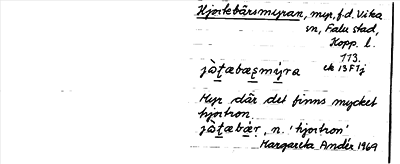 Hjortebärsmyran, myr, f.d. Vika
sn, Falu stad,
Kopp. l.
113.
ek 13F1j
jò̀tæbæşmýra
Myr där det finns mycket
hjortron.
jò̀tæbær, n. 'hjortron'
Margareta Andér 1964